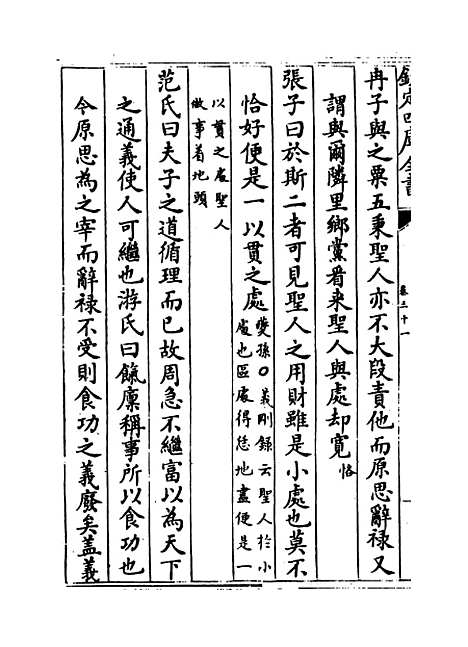 欽定四庫全書
卷三十一
冉子與之粟五秉聖人亦不大段責他而原思辭禄又
謂與爾隣里鄉黨看来聖人與處却寛恪
張子曰於斯二者可見聖人之用財雖是小處也莫不
恰好便是一以貫之處
夔孫〇義剛録云聖人於小
處也區處得恁地盡便是一
以貫之處聖人
做事着地頭
范氏曰夫子之道循理而已故周急不繼富以為天下
之通義使人可繼也游氏曰餼廪稱事所以食功也
今原思為之宰而辭禄不受則食功之義廢矣盖義